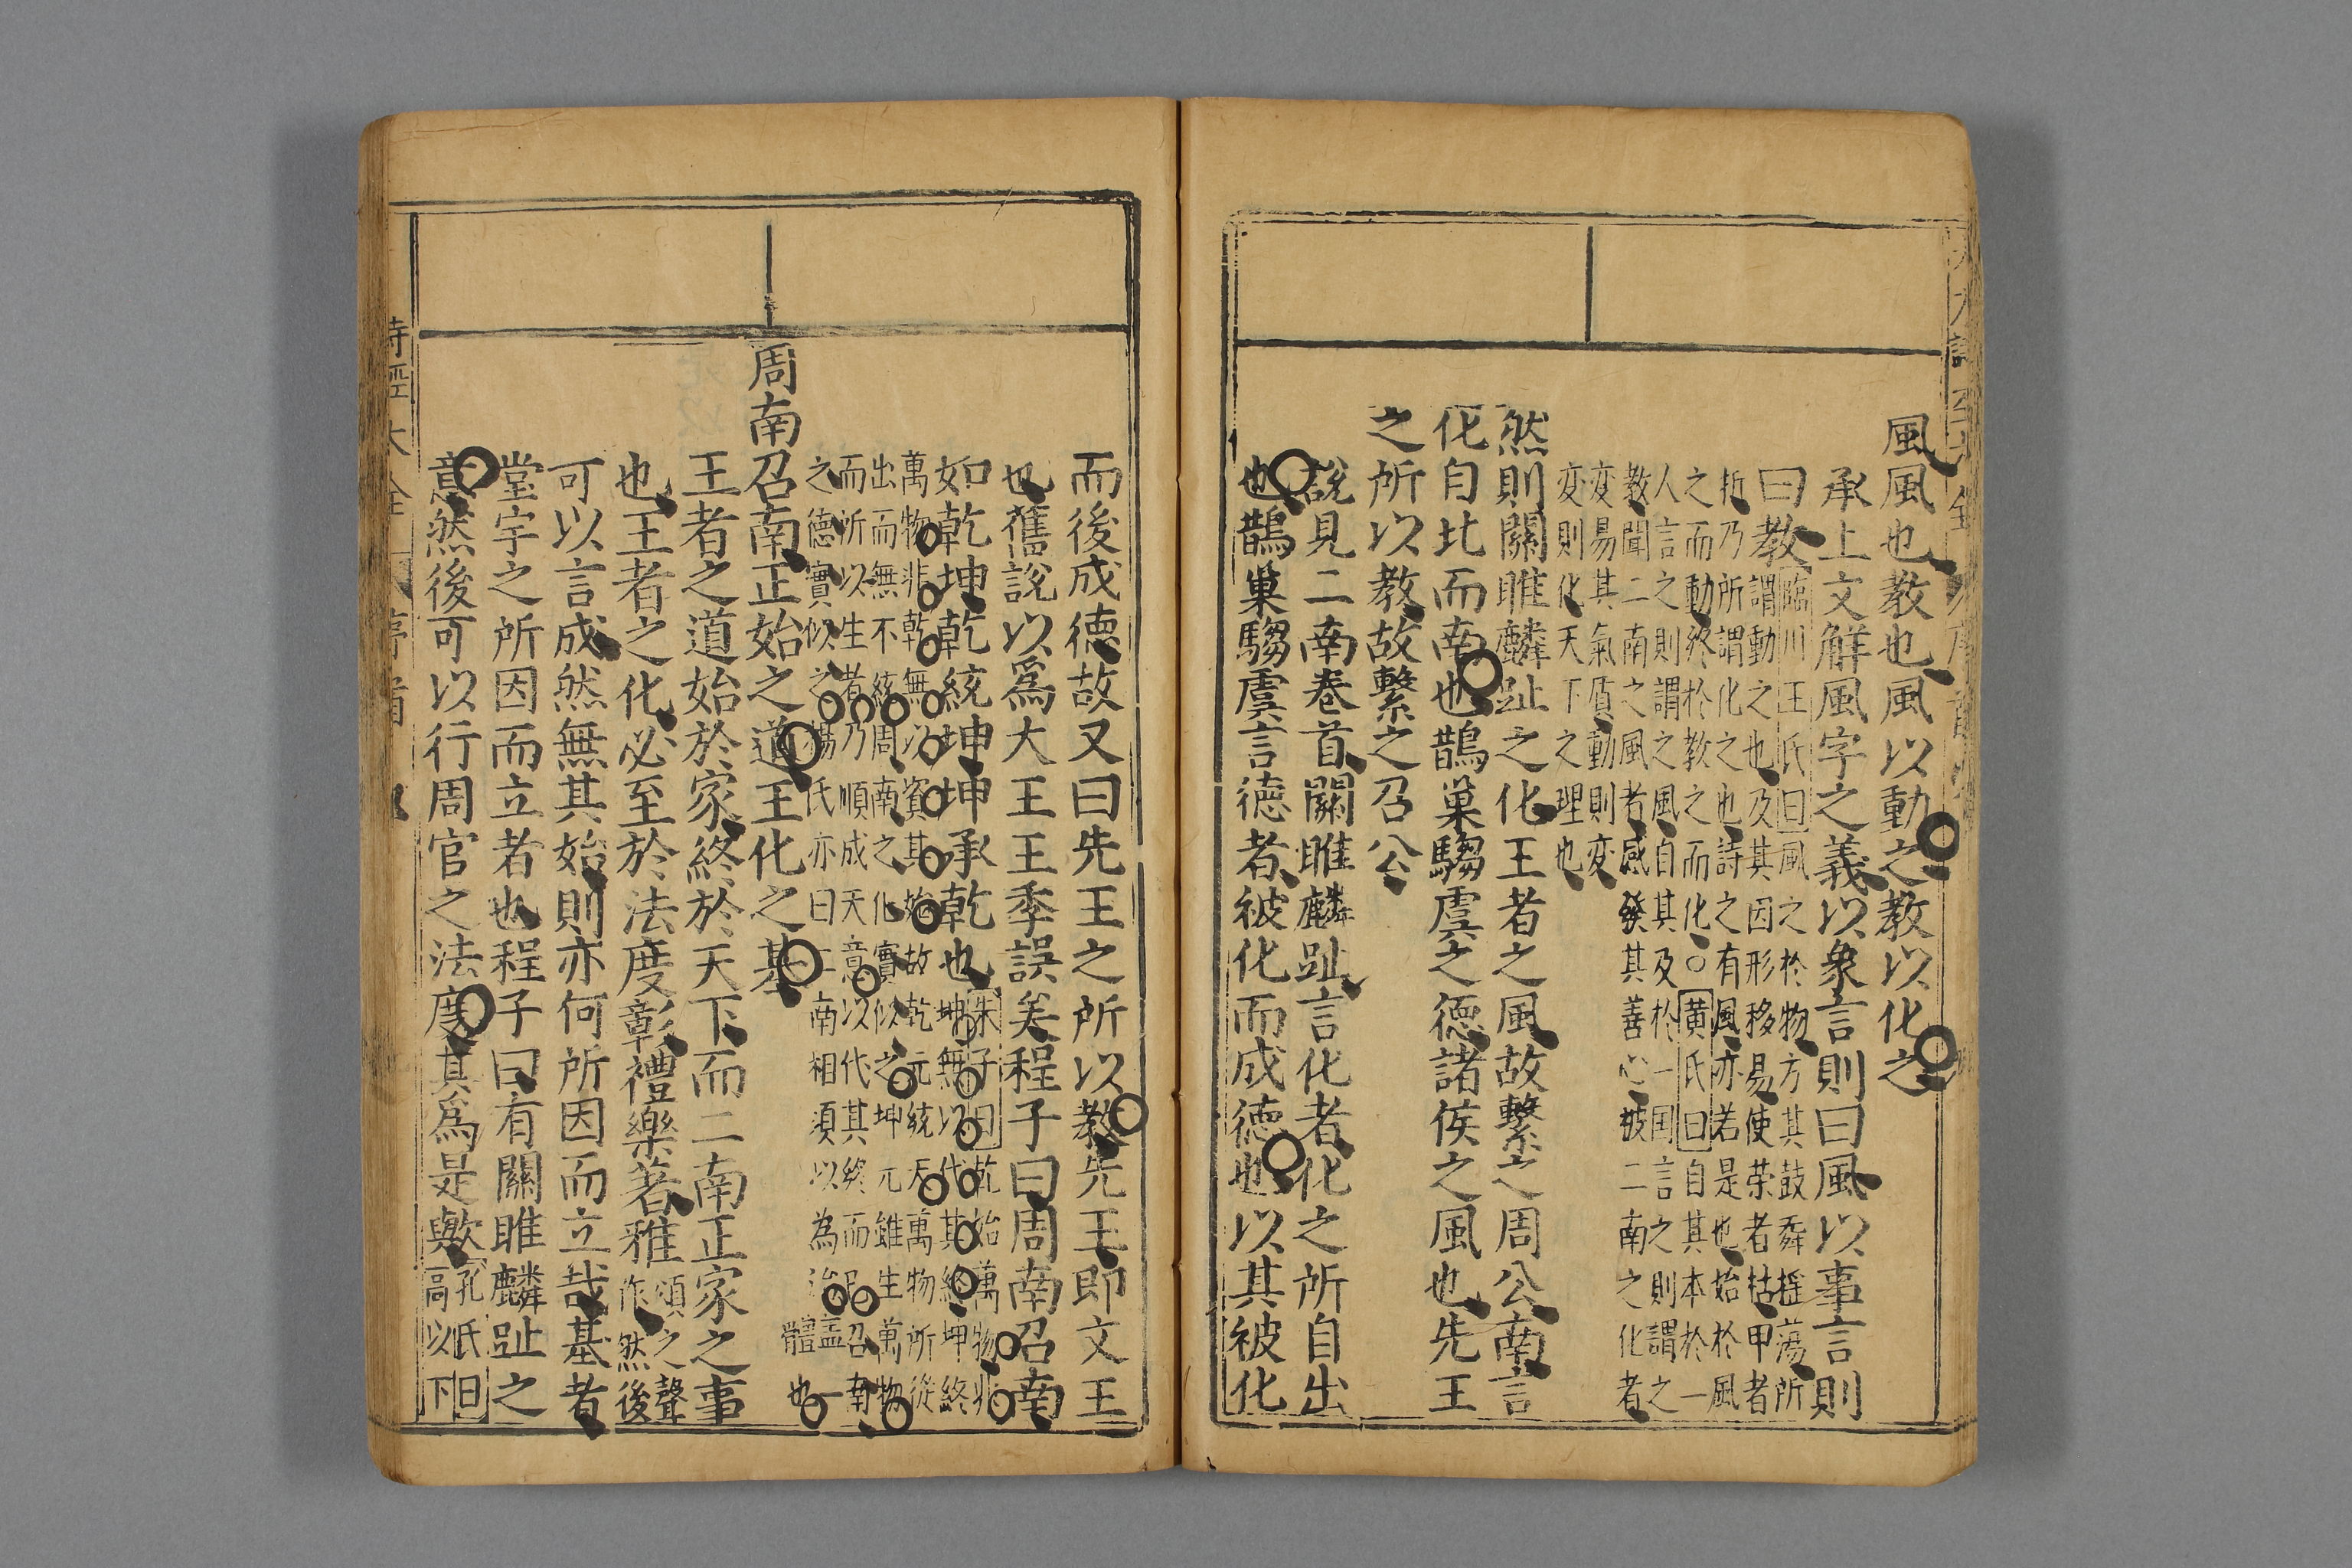 風風也教也風以動之教以化之
承上文解風字之義以象言則曰風以事言則
曰教臨川王氏曰風之於物方其鼓舞搖蕩所
謂動之也及其因形移易使荣者枯甲者
拆乃所謂化之也詩之有風亦若是也始於風
之而動終於教之而化○黄氏曰自其本於一
人言之則謂之風自其及於一国言之則謂之
教聞二南之風者感發其善心被二南之化者
変易其氣质動則変
変則化天下之理也
然則關雎麟趾之化王者之風故繫之周公南言
化自北而南也鵲巢騶虞之德諸侯之風也先王
之所以教故繫之召公
說見二南卷首關雎麟趾言化者化之所自出
也鵲巢騶虞言德者被化而成德也以其被化
而後成德故又曰先王之所以教先王即文王
也舊說以爲大王王季誤矣程子曰周南召南
如乾坤乾統坤坤承乾也朱子曰乾始萬物非
坤無以代其終坤終
萬物非乾無以資其始故乾元統天萬物所從
出而無不統周南之化實似之坤元雖生萬物
而所以生者乃順成天意以代其終而已召南
之德實似之楊氏亦曰二南相須以為治蓋一
體也
周南召南正始之道王化之基
王者之道始於家終於天下而二南正家之事
也王者之化必至於法度彰禮樂著雅頌之聲
作然後
可以言成然無其始則亦何所因而立哉基者
堂宇之所因而立者也程子曰有關雎麟趾之
意然後可以行周官之法度其爲是歟孔氏曰
高以下
詩經大全